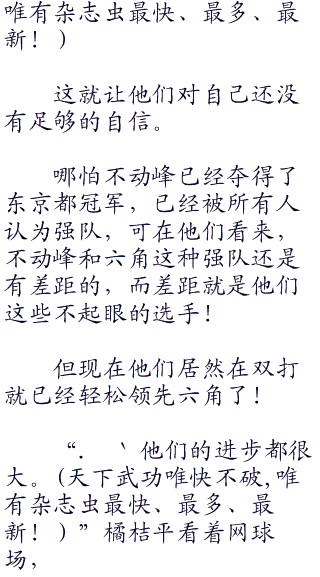 唯有杂志虫最快、最多、最
新！)
这就让他们对自己还没
有足够的自信。
哪怕不动峰已经夺得了
东京都冠军，已经被所有人
认为强队，可在他们看来，
不动峰和六角这种强队还是
有差距的，而差距就是他们
这些不起眼的选手！
但现在他们居然在双打
就已经轻松领先六角了！
“．｀他们的进步都很
大。(天下武功唯快不破,唯
有杂志虫最快、最多、最
新！)”橘桔平看着网球
场，